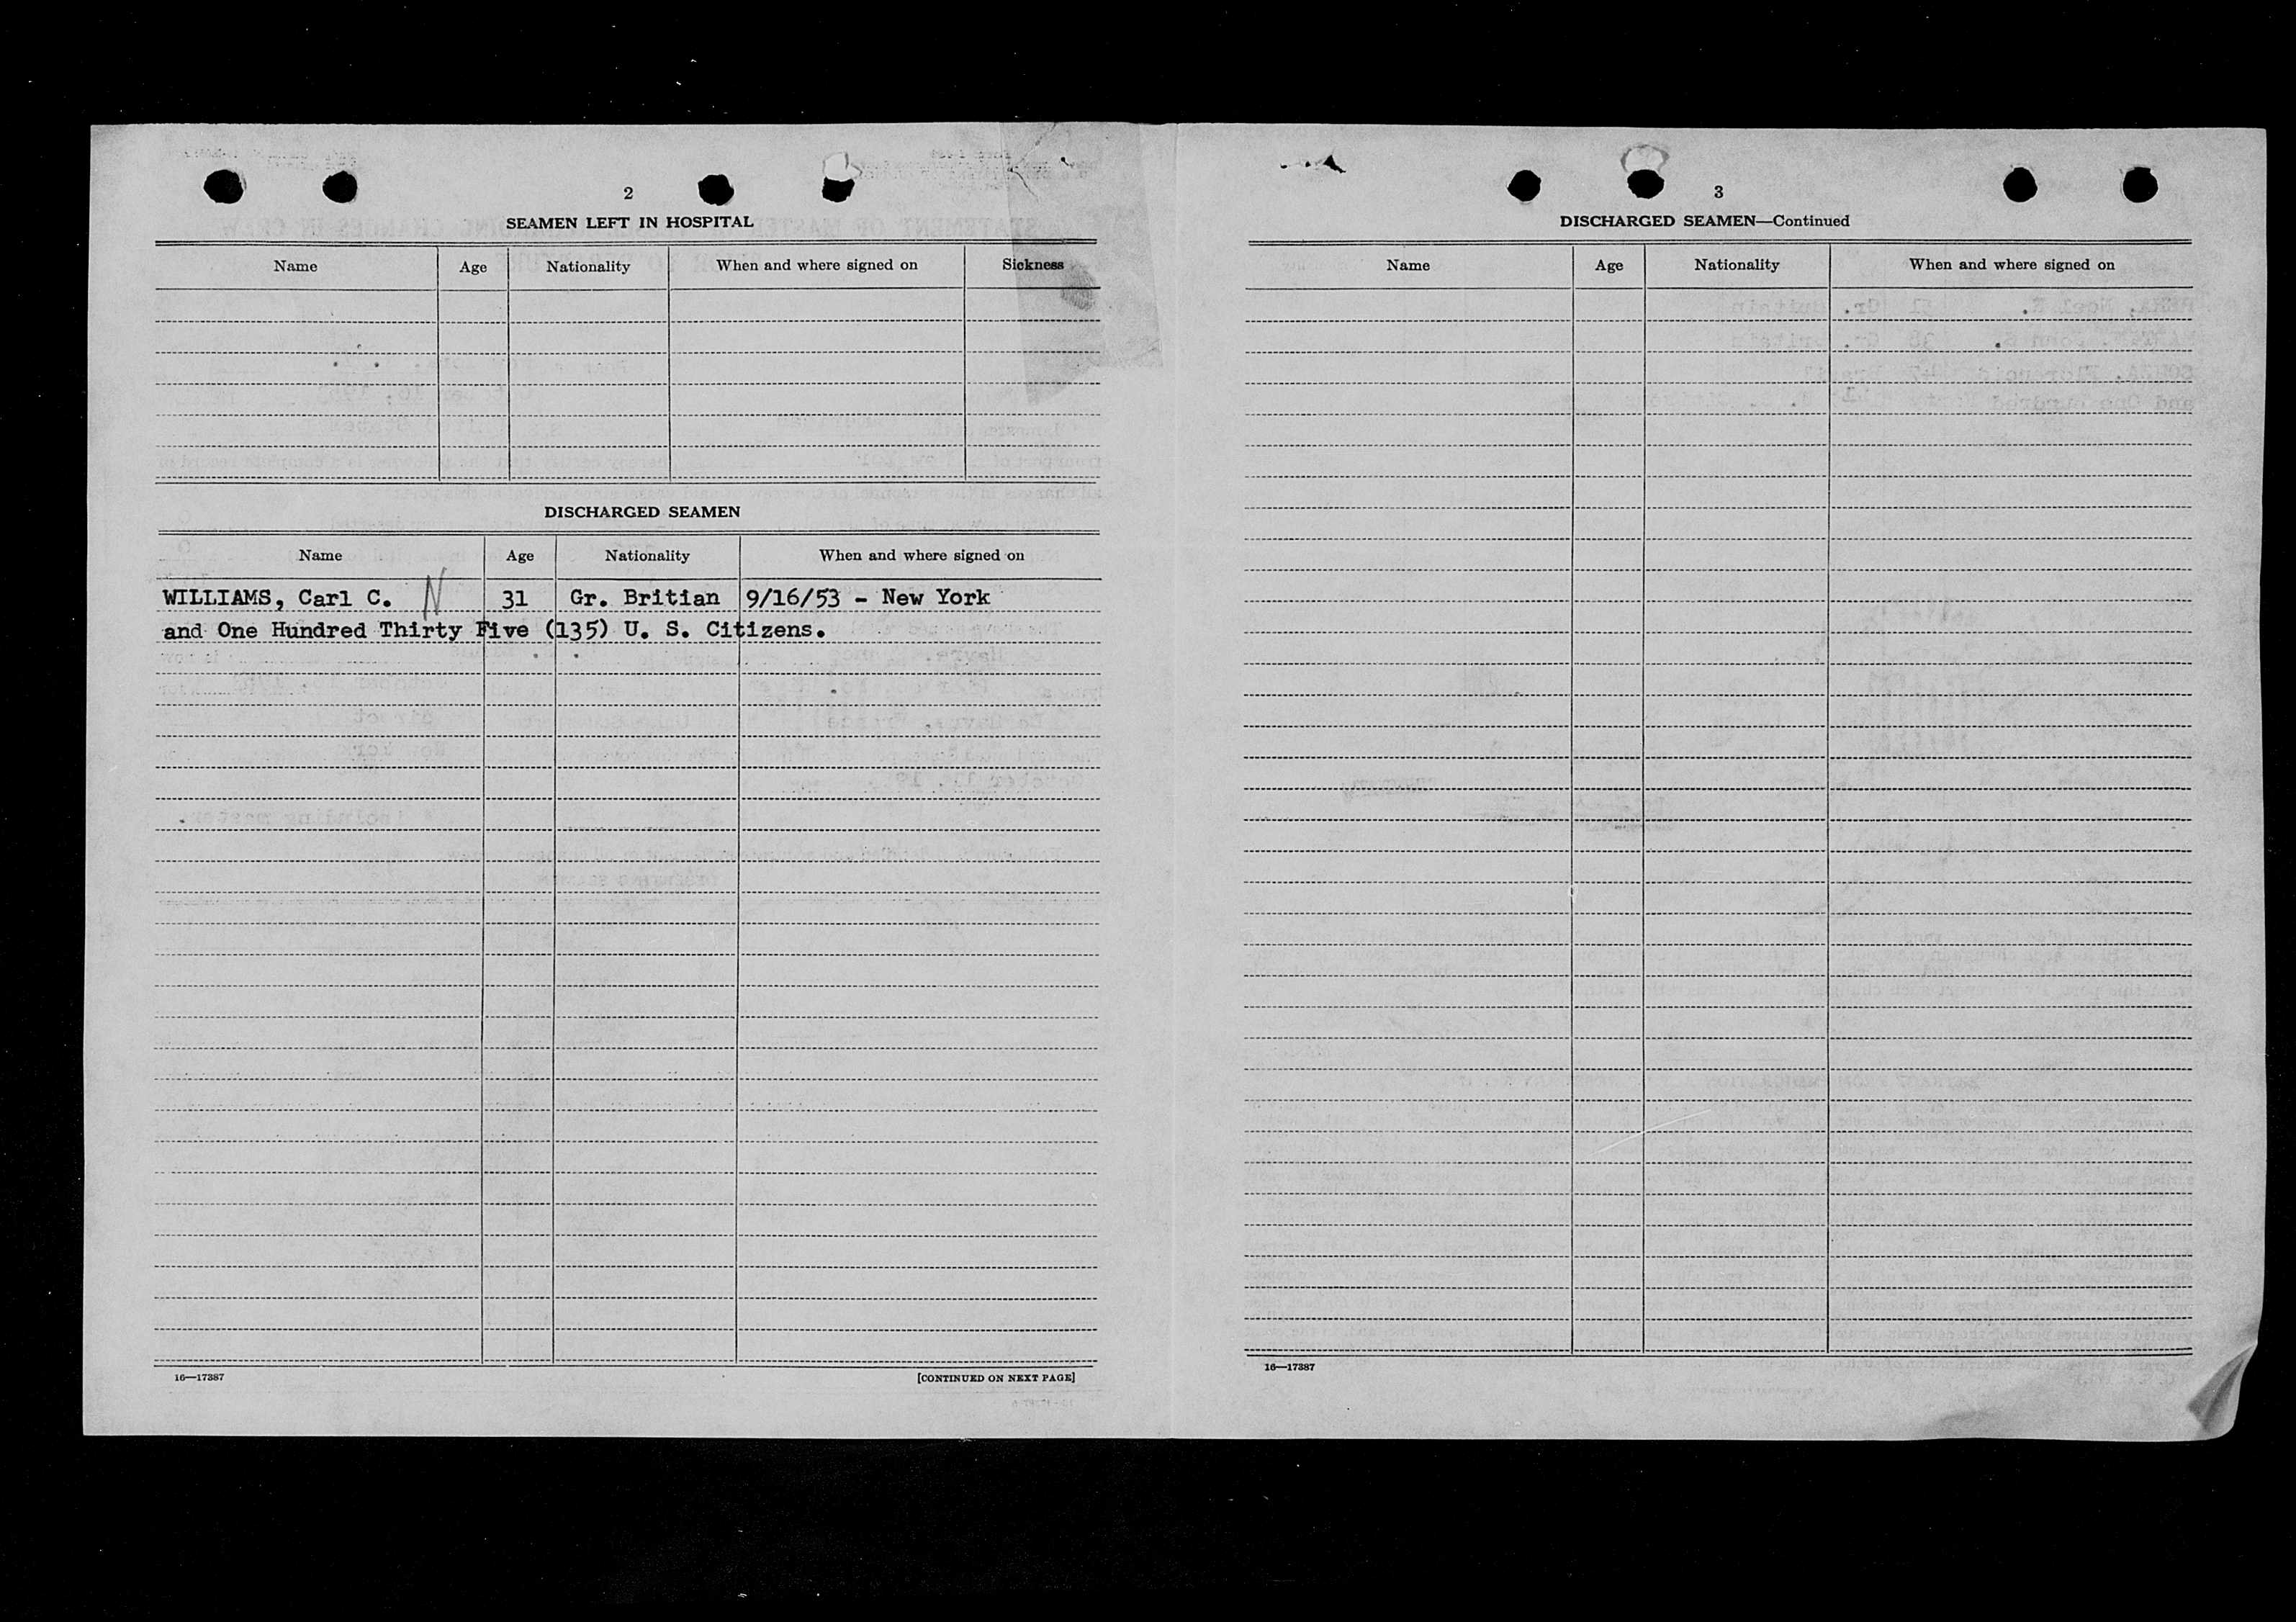 2
SEAMEN LEFT IN HOSPITAL
Name Age Nationality When and where signed on Sickness
DISCHARGED SEAMEN
Name Age Nationality When and where signed on
WILLIAMS, Carl C. N 31 Gr. Britian 9/16/53 - New York
and One Hundred Thirty Five (135) U. S. Citizens.
16—17387 [CONTINUED ON NEXT PAGE]
3
DISCHARGED SEAMEN—Continued
Name Age Nationality When and where signed on
16—17387